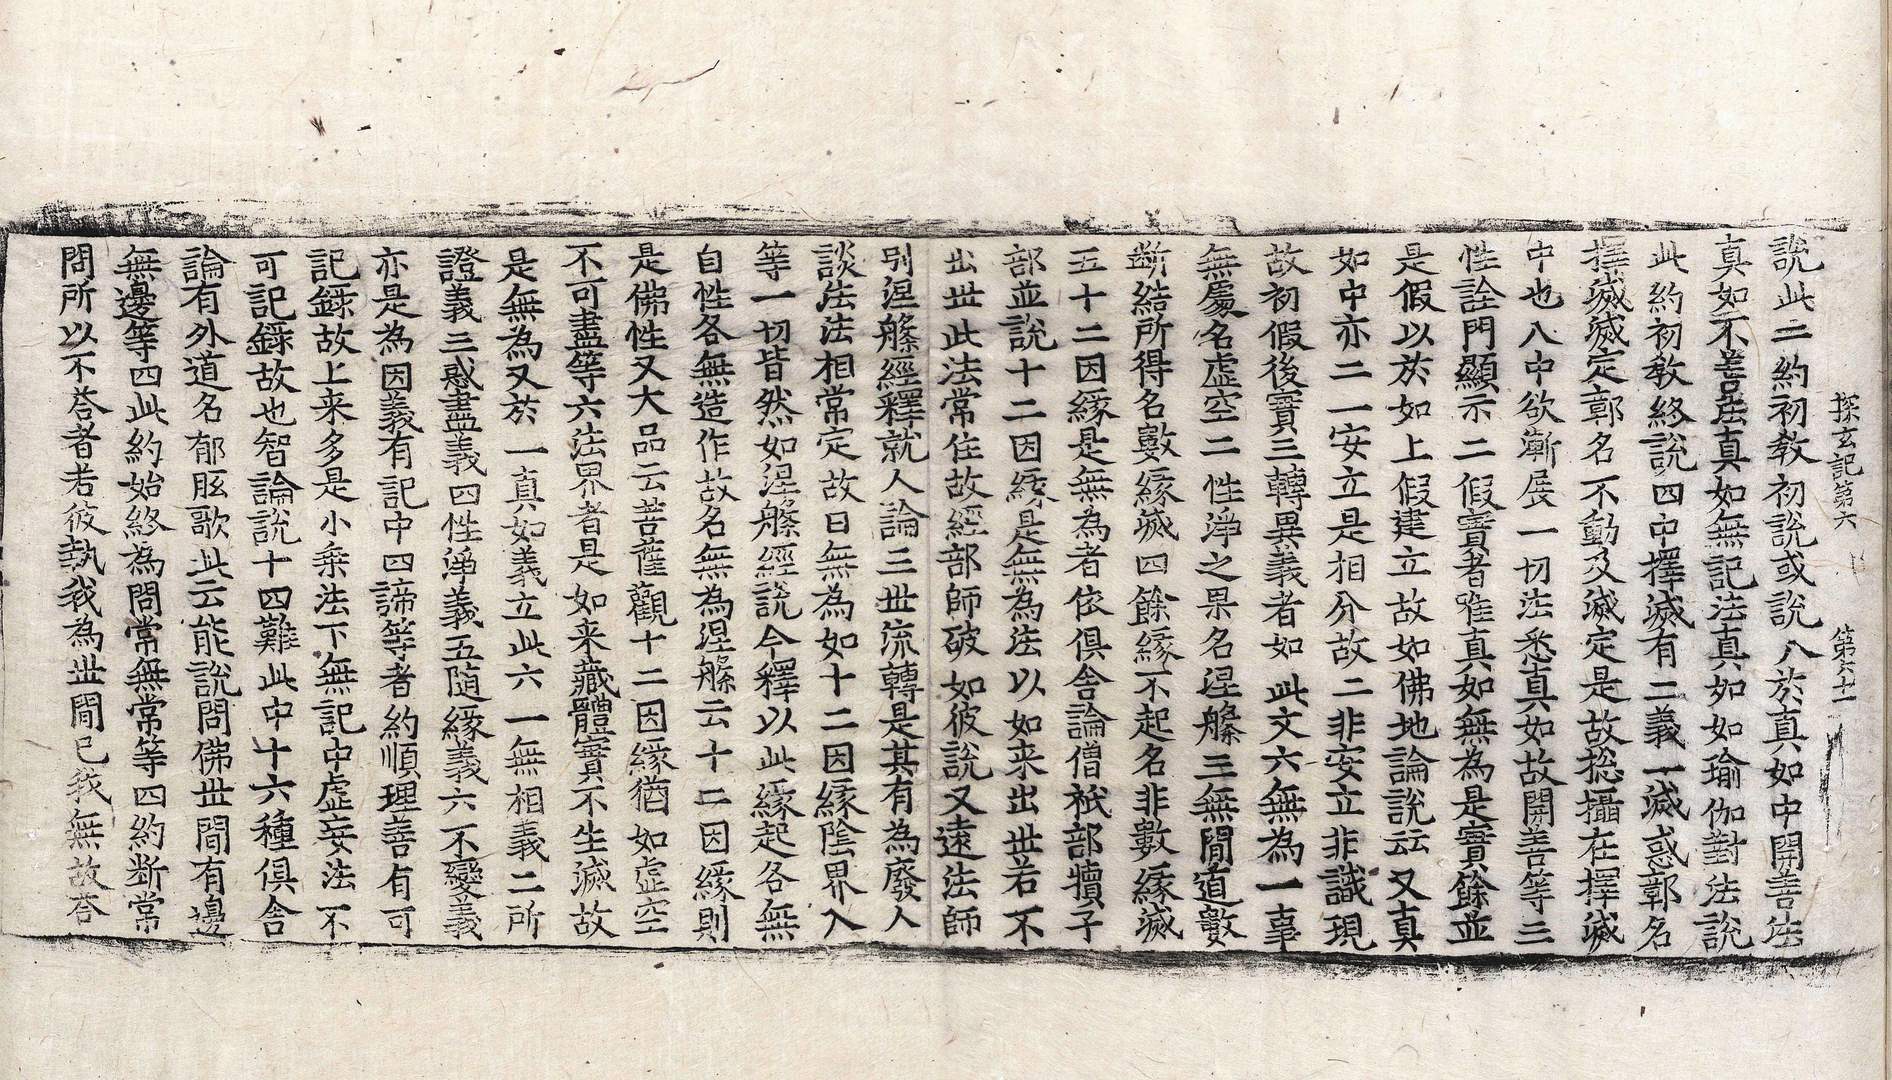 探玄記第六 第六十一
說此二約初教初說或說八於真如中開善法
真如不善法真如無記法真如如瑜伽對法說
此約初教終說四中擇滅有二義一滅惑鄣名
擇滅滅定鄣名不動及滅定是故揔攝在擇滅
中也八中欲漸展一切法悉真如故開善等三
性詮門顯示二假實者唯真如無為是實餘並
是假以於如上假建立故如佛地論說云又真
如中亦二一安立是相分故二非安立非識現
故初假後實三轉異義者如此文六無為一事
無處名虛空二性淨之果名涅槃三無間道數
斷結所得名數緣滅四餘緣不起名非數緣滅
五十二因緣是無為者依俱舍論僧祇部犢子
部並說十二因緣是無為法以如来出世若不
出世此法常住故經部師破如彼說又遠法師
別涅槃經釋就人論三世流轉是其有為廢人
談法法相常定故曰無為如十二因緣陰界入
等一切皆然如涅槃經說今釋以此緣起各無
自性各無造作故名無為涅槃云十二因緣則
是佛性又大品云菩薩觀十二因緣猶如虛空
不可盡等六法界者是如来藏體實不生滅故
是無為又於一真如義立此六一無相義二所
證義三惑盡義四性淨義五隨緣義六不變義
亦是為因義有記中四諦等者約順理善有可
記録故上来多是小乘法下無記中虛妄法不
可記録故也智論說十四難此中十六種俱舍
論有外道名郁胘歌此云能說問佛世間有邊
無邊等四此約始終為問常無常等四約斷常
問所以不荅者若彼執我為世間已我無故荅